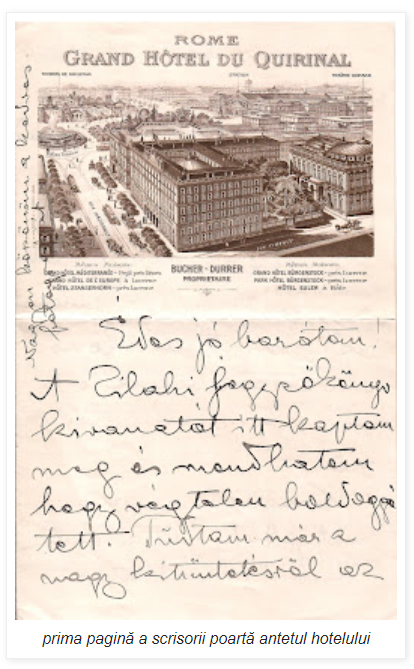 ROME
GRAND HÔTEL DU QUIRINAL
BUCHER-DURRER
PROPRIÉTAIRE
Mêmes Maisons:
GRAND HÔTEL MÉDITERRANÉE - Pegli près Gênes
GRAND HÔTEL DE L'EUROPE à Lucerne
HÔTEL STANSERHORN - près Lucerne
Mêmes Maisons:
GRAND HÔTEL BÜRGENSTOCK - près Lucerne
PARK HÔTEL BÜRGENSTOCK - près Lucerne
HÔTEL EULER à Bâle
Nagyon köszönöm a kedves
Édes jó barátom!
A Zilahi jegyzőkönyv
kivonatot itt kaptam
meg és mondhatom
hogy végtelen boldoggá
tett. Tudtam már a
nagy kitüntetésről az
prima pagină a scrisorii poartă antetul hotelului